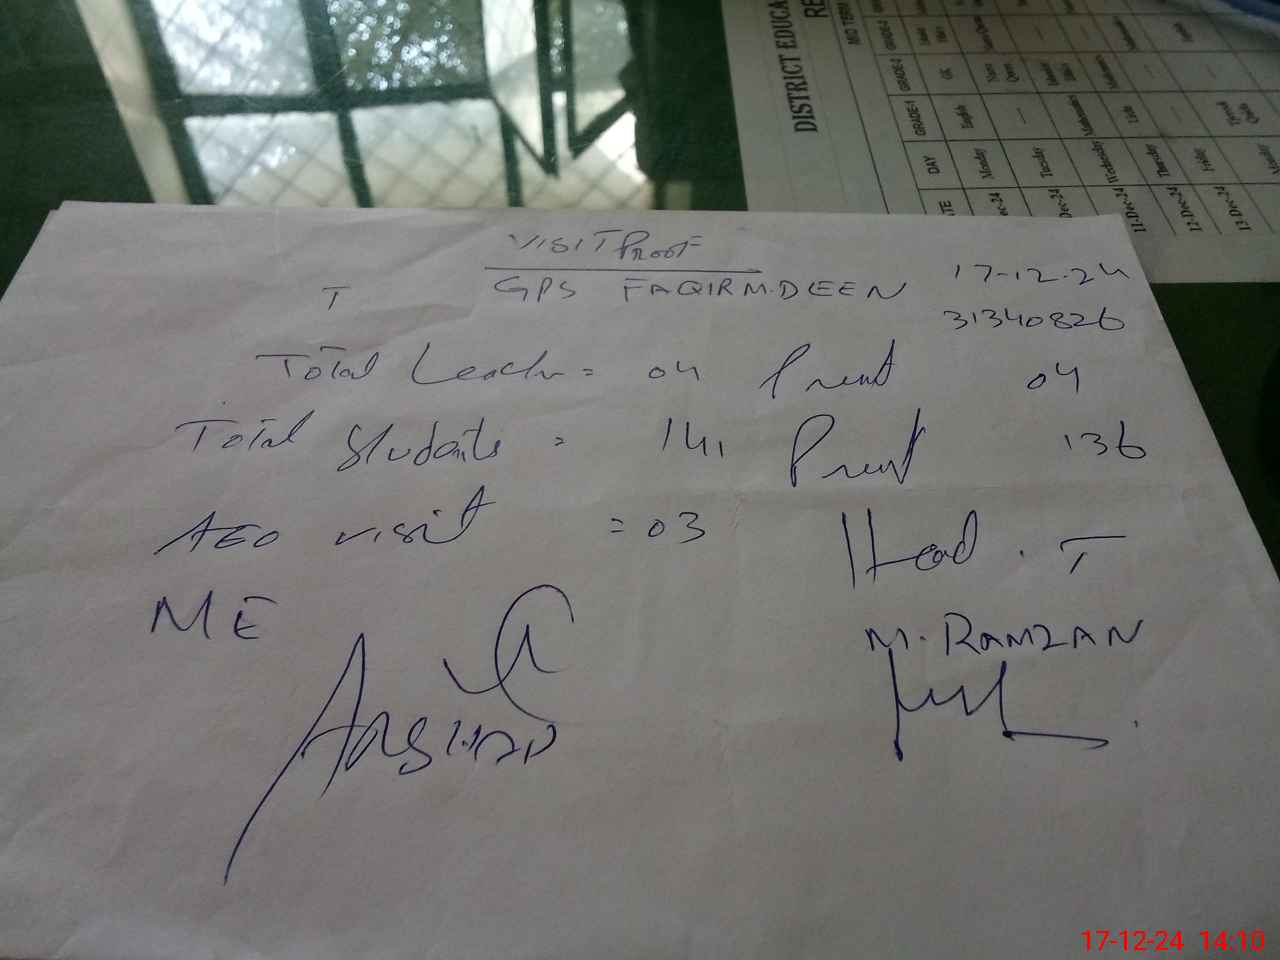 VISIT PROOF
T GPS FAQIR M.DEEN 17-12-24
31340826
Total Teacher = 04 Present 04
Total Students = 141 Present 136
AEO visit = 03 Head . T
ME M. RAMZAN
ARSHAD
DISTRICT EDUCA
RE
MID TERM
TE DAY GRADE-1 GRADE-2 GRADE-3
ec-24 Monday English GK
Dec-24 Tuesday —
11-Dec-24 Wednesday Mathematics
12-Dec-24 Thursday Urdu
13-Dec-24 Friday —
Monday
17-12-24 14:10